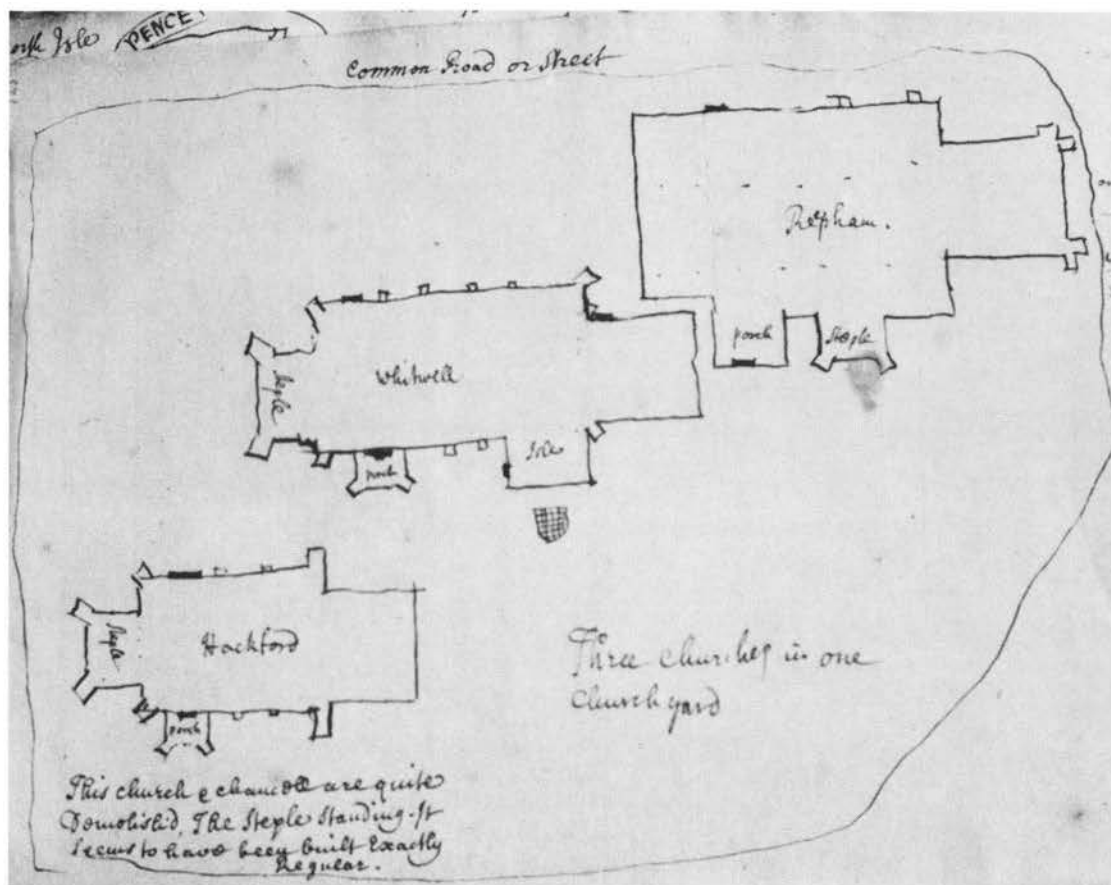 North Isle
PENCE
Common Road or Street
Reepham.
porch
Steple
Whitwell
Steple
porch
Isle
Hackford
Steple
porch
Three churches in one
Church yard
This church & chancell are quite
Demolishd, The Steple Standing. It
Seems to have been built Exactly
Regular.